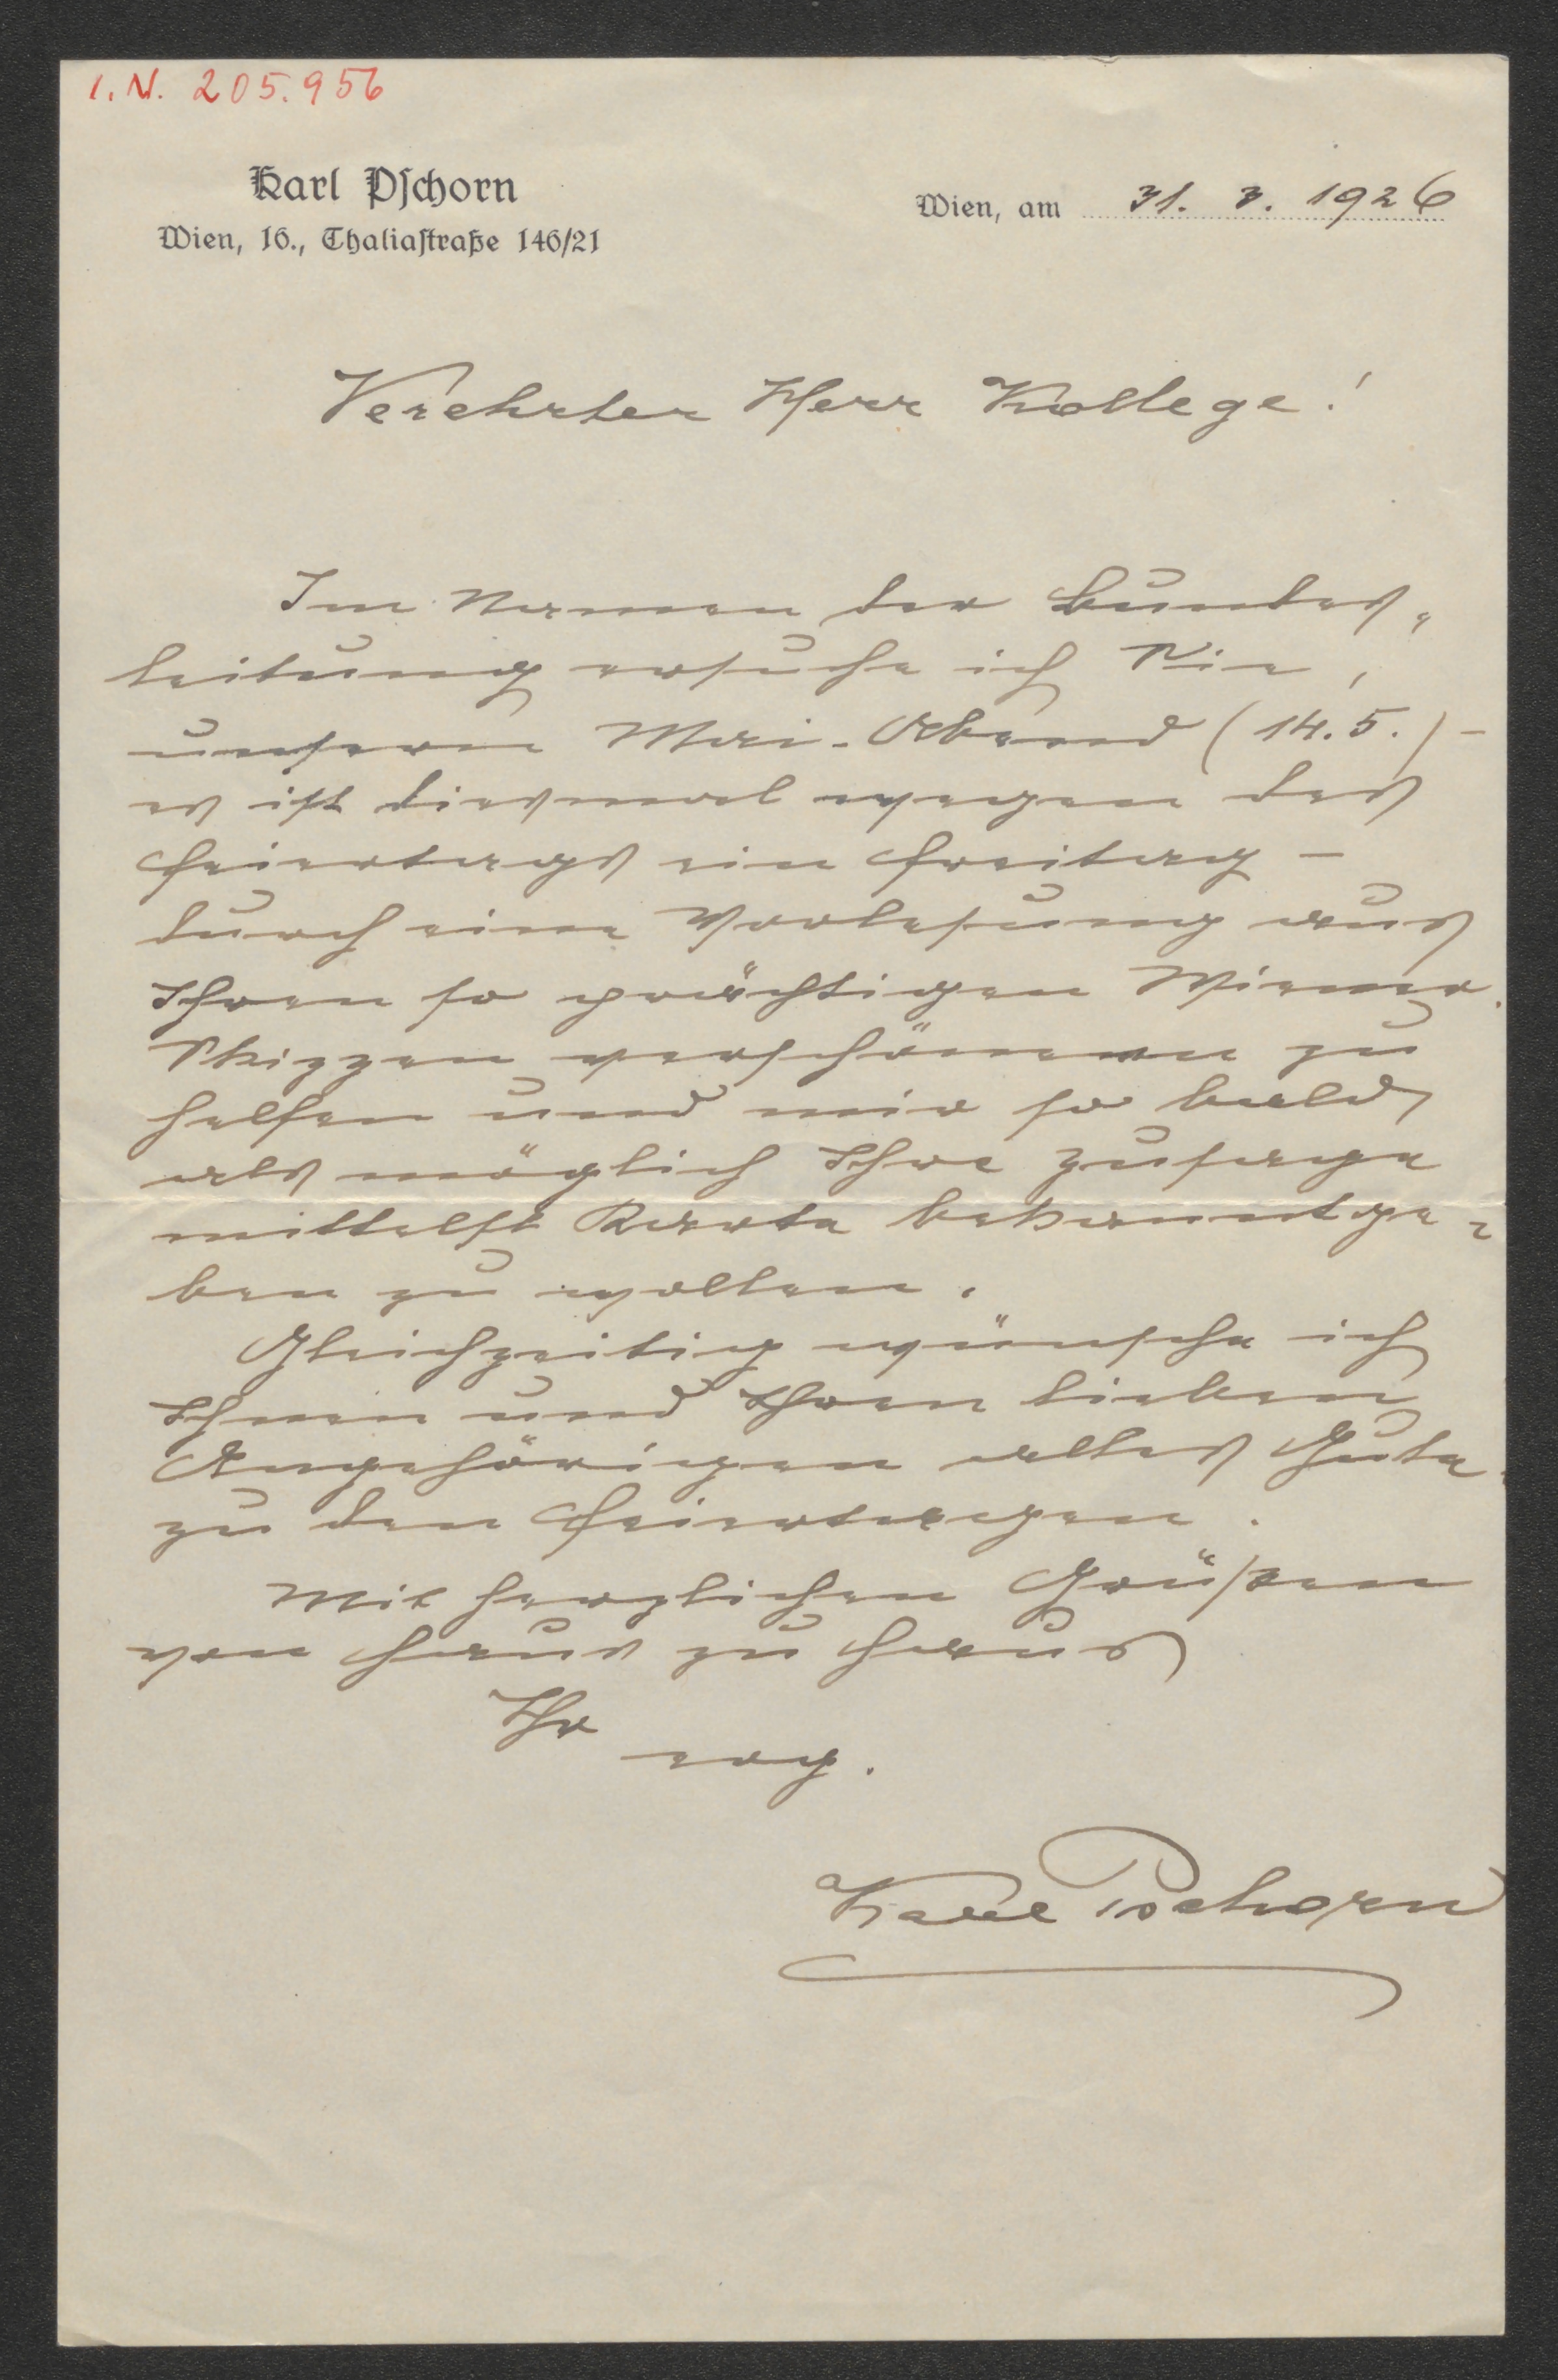 I. N. 205.956
Karl Pschorn
Wien, 16., Thaliastraße 146/21
Wien, am 31. 3. 1926
Verehrter Herr Kollege!
Im Namen der Bundes-
leitung ersuche ich Sie,
unseren Mai-Abend (14.5.) –
es ist diesmal wegen des
Feiertags ein Freitag –
durch eine Vorlesung aus
Ihren so prächtigen Wiener
Skizzen verschönern zu
helfen und mir so bald
als möglich Ihre Zusage
mittelst Karte bekanntge-
ben zu wollen.
Gleichzeitig wünsche ich
Ihnen und Ihren lieben
Angehörigen alles Gute
zu den Feiertagen.
Mit herzlichen Grüßen
von Haus zu Haus
Ihr
erg.
Karl Pschorn